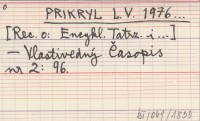 PRIKRYL L.V. 1976...
[Rec. o: Encykl. Tatrz. i...]
– Vlastivedný Časopis
nr 2: 96.